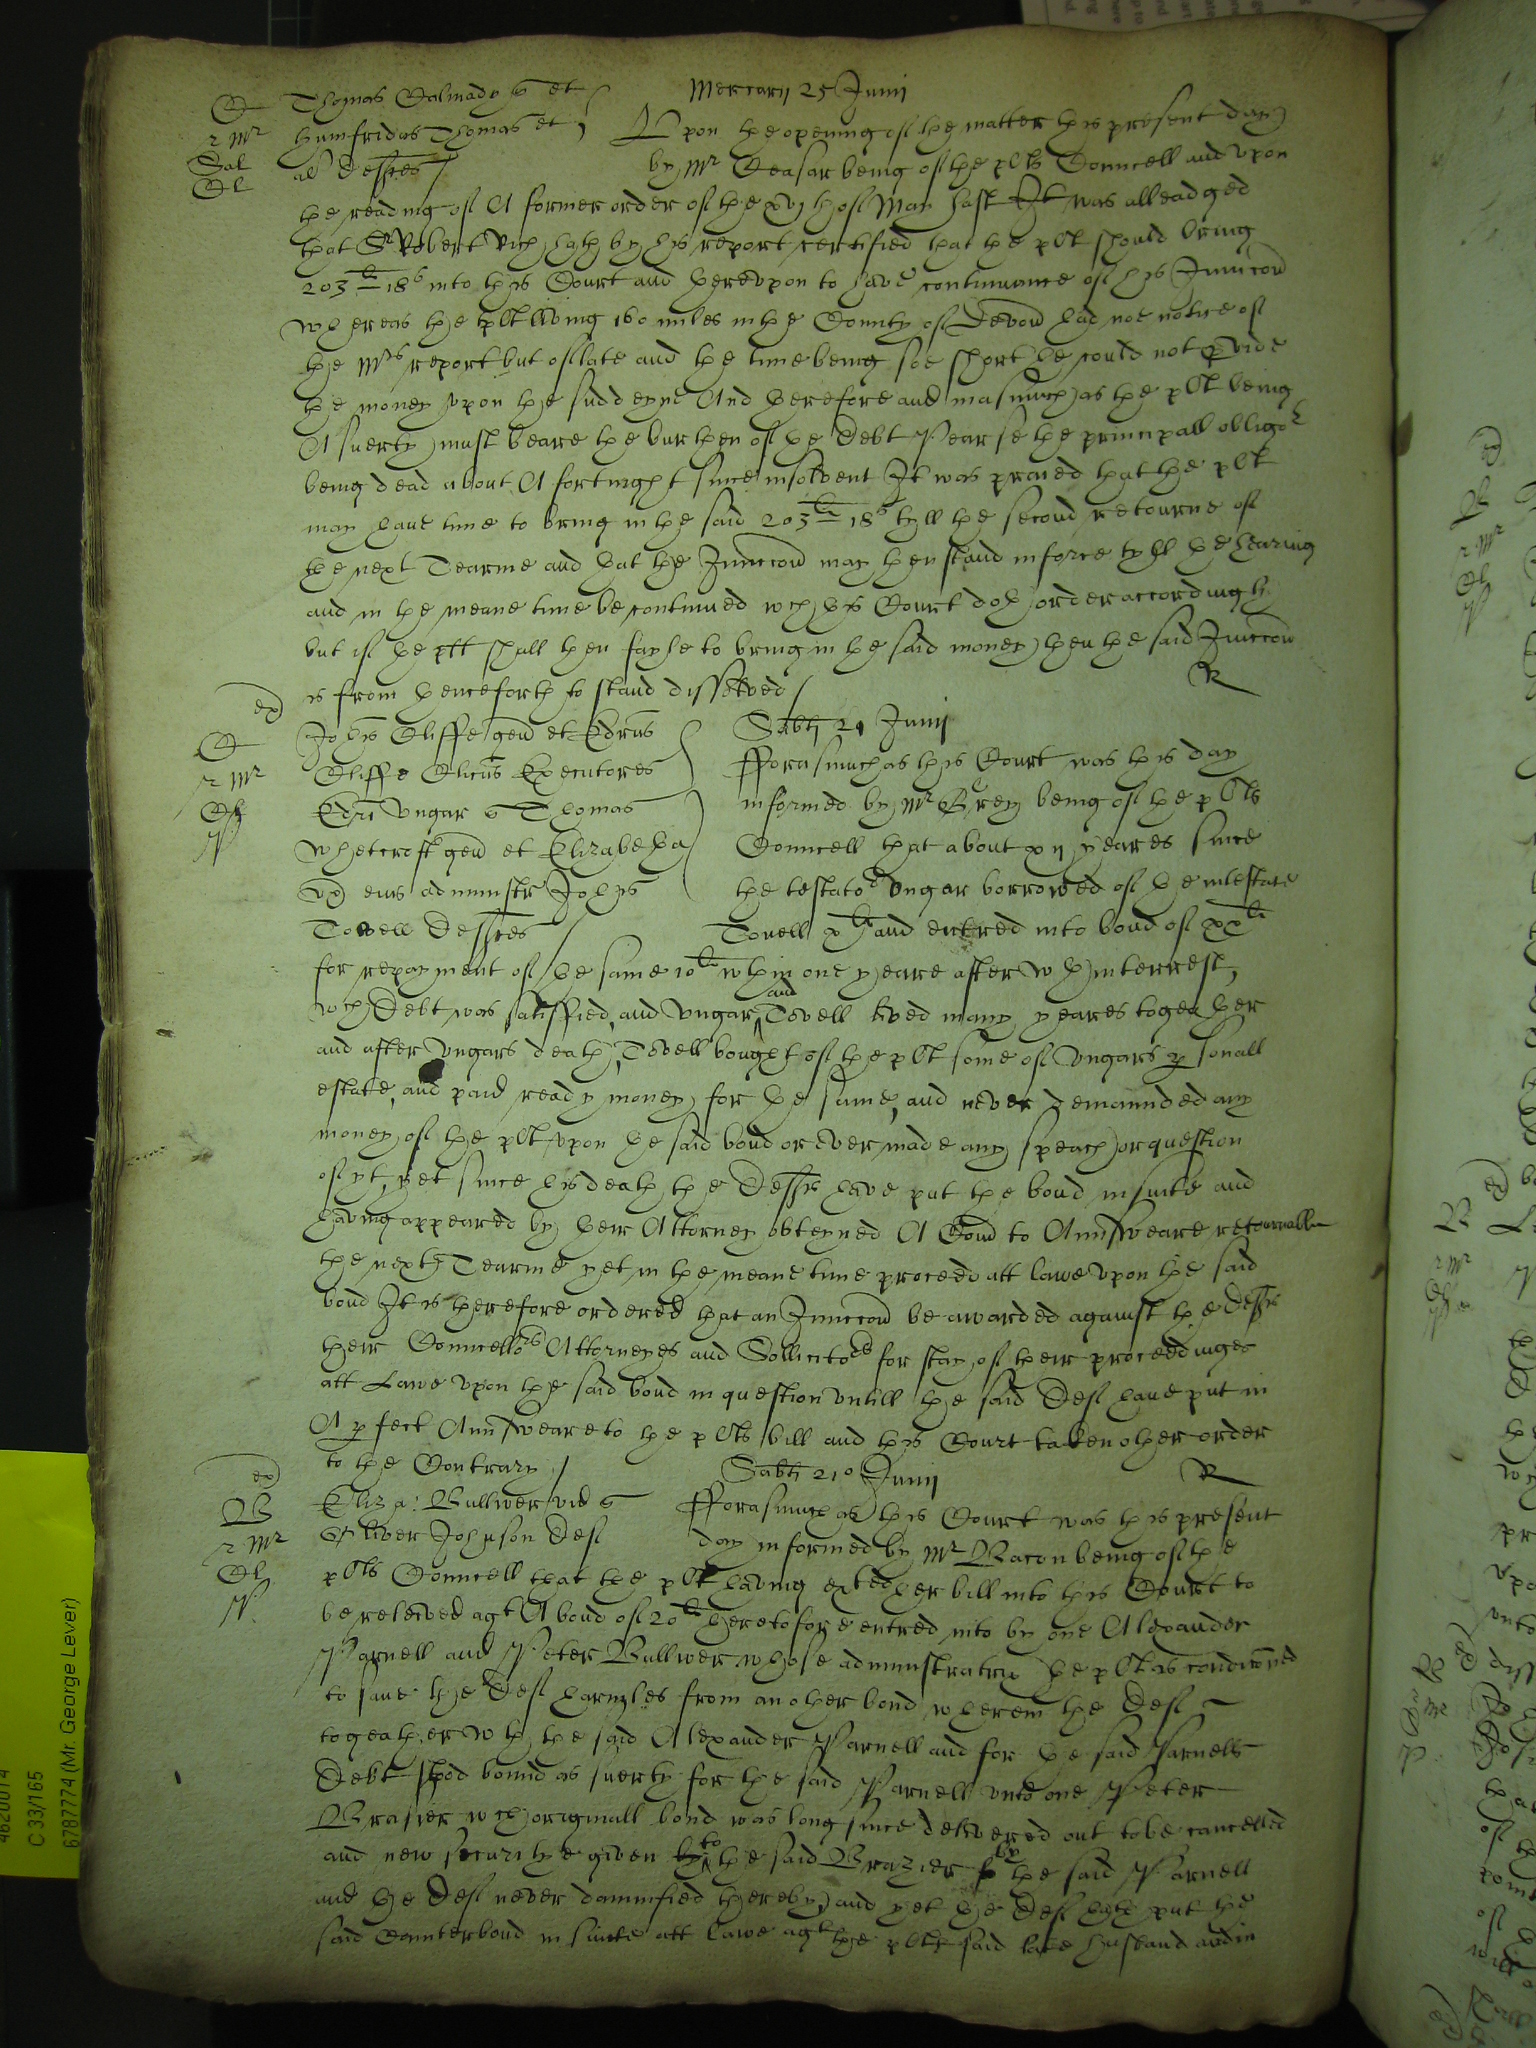 Mercurij 25 Junij
Thomas Calmady q et
Humfridus Thomas et
al defftes
Vpon the opening of the matter this present day
by Mr Ceasar being of the plts Councell and vpon
the reading of A former order of the xvjth of May last It was alleadged
that Sr Robert Rich hath by his report certified that the plt should bring
203li 18s into this Court and therevpon to have continuance of his Iniuccon
whereas the plt living 160 miles in the County of Devon had noe notice of
the Mrs report but of late and the time being soe short he could not pvide
the money vpon the suddeyne And therefore and inasmuch as the plt being
A suerty must beare the burthen of the debt Pearse the principall obligor
being dead about A fortnight since insolvent It was praied that the plt
may haue time to bring in the said 203li 18s tyll the second retourne of
the next Tearme and that the Iniuccon may then stand in force tyll the hearing
and in the meane time be continued wch this Court doth order accordingly
but if the plt shall then fayle to bring in the said money then the said Iniuccon
is from thenceforth to stand dissolved R
Johes Cliffe gen et Edrus
Cliffe Clicus Executores
Edri Vngar q Thomas
Whetcroft gen et Elizabetha
vx eius administr Johis
Tovell defftes
Sabti 21 Junij
Fforasmuch as this Court was this day
informed by Mr Grey being of the plts
Councell that about xij yeares since
the testator Vngar borrowed of the intestate
Tovell xli and entred into bond of xxli
for repayment of the same 10li wthin one yeare after wth interrest,
wch debt was satisffied, and Vngar and Tovell lived many yeares togeather
and after Vngars death, Tovell bought of the plt some of Vngars psonall
estate, and paid ready money for the same, and never demaunded any
money of the plt vpon the said bond or ever made any speach or question
of yt, yet since his death the deffts have put the bond in suite and
having appeared by their Attorney obteyned A Com to Annsweare retournable
the next Tearme yet in the meane time proceed att lawe vpon the said
bond It is therefore ordered that an Iniuccon be awarded against the deffts
their Councellors Attorneyes and Sollicitors for stay of their proceedinges
att Lawe vpon the said bond in question vntill the said Def haue put in
A pfect Annsweare to the plts bill and this Court taken other order
to the Contrary
Sabti 21o Junij R
Eliza: Bullwer vid q
Oliver Johnson Def
Fforasmuch as this Court was this present
day informed by Mr Bacon being of the
plts Councell that the plt having exhted her bill into this Court to
be releived agt A bond of 20li heretofore entred into by one Alexander
Parnell and Peter Bullwer whose administratrix the plt is condiconed
to saue the Def harmles from another bond wherein the Def
togeather wth the said Alexander Parnell and for the said Parnells
debt stood bound as suerty for the said Parnell vnto one Peter
Brasier wch originall bond was long since delivered out to be cancelled
and new securitye given to the said Brazier by the said Parnell
and the Def never damnified thereby and yet the Def hath put the
said Counterbond in suite att lawe agt the plts said late husband and in
C 33/165
6787774 (Mr. George Lever)